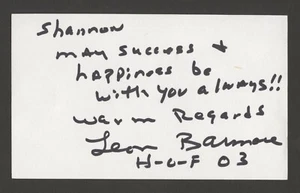 Shannon
may success &
happiness be
with you always!!
warm Regards
Leon Barmore
H-O-F 03